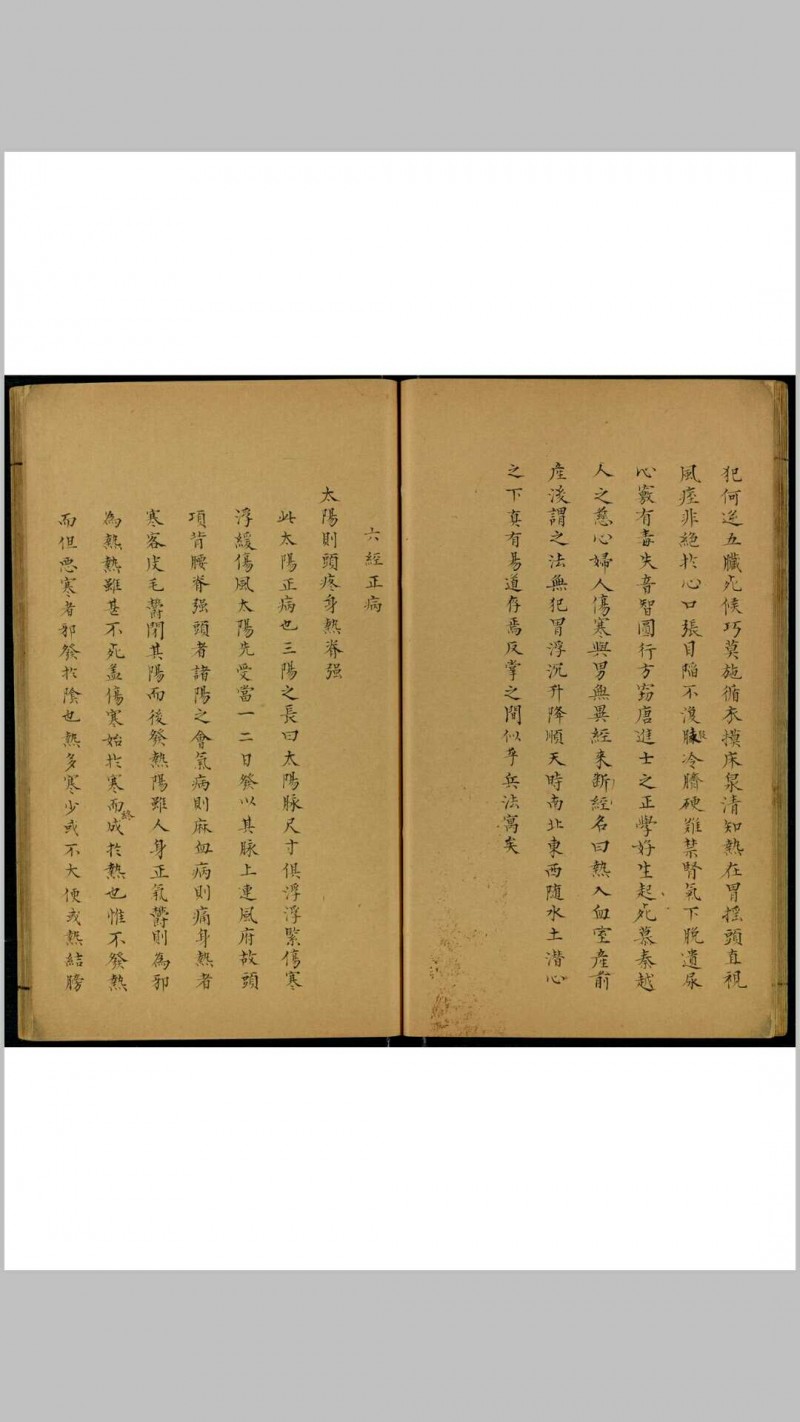 犯何逆五臟死候巧莫施循衣摸床泉清知熱在胃揺頭直視
風痙非絕於心口張目陷不没脉冷臍硬難禁腎氣下脱遺尿
心竅有毒失音智圓行方窃唐進士之正學好生起死慕秦越
人之慈心婦人傷寒與男無異經来断經名曰熱入血室產前
產後謂之法無犯胃浮沉升降順天時南北東西随水土潜心
之下真有易道存焉反掌之間似乎兵法寓矣
六經正病
太陽則頭疼身熱脊强
此太陽正病也三陽之長曰太陽脉尺寸俱浮浮緊傷寒
浮緩傷風太陽先受當一二日發以其脉上連風府故頭
項背腰脊强頭者諸陽之會氣病則麻血病則痛身熱者
寒客皮毛鬱閉其陽而後發熱陽雖人身正氣鬱則為邪
為熱熱雖甚不死盖傷寒始於寒而成終於熱也惟不發熱
而但惡寒者邪發於陰也熱多寒少或不大便或熱結膀